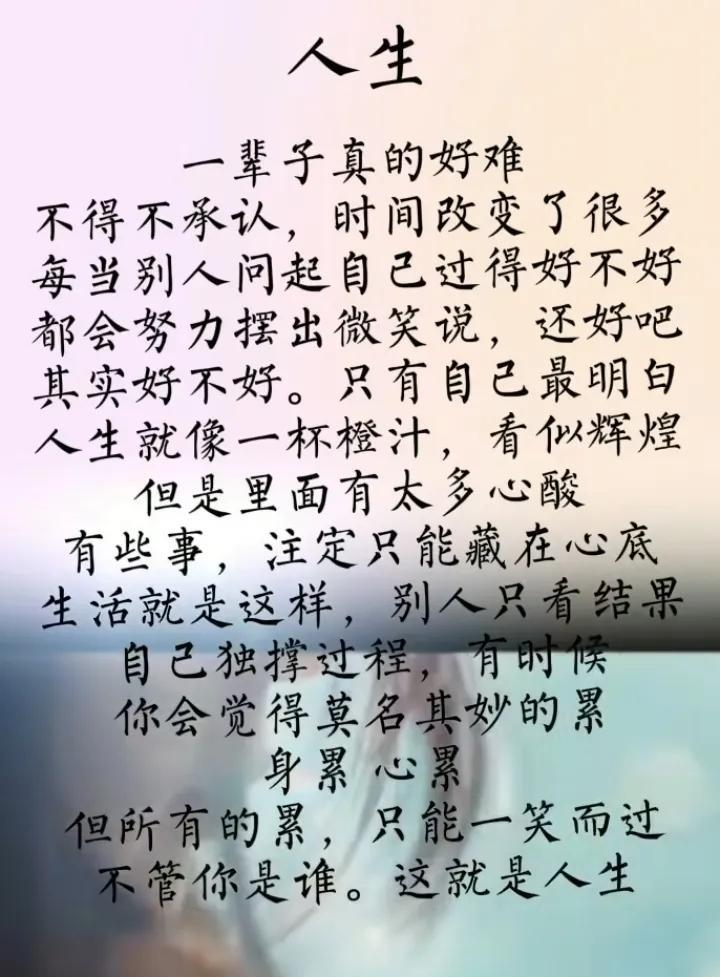 人生
一辈子真的好难
不得不承认，时间改变了很多
每当别人问起自己过得好不好
都会努力摆出微笑说，还好吧
其实好不好。只有自己最明白
人生就像一杯橙汁，看似辉煌
但是里面有太多心酸
有些事，注定只能藏在心底
生活就是这样，别人只看结果
自己独撑过程，有时候
你会觉得莫名其妙的累
身累 心累
但所有的累，只能一笑而过
不管你是谁。这就是人生